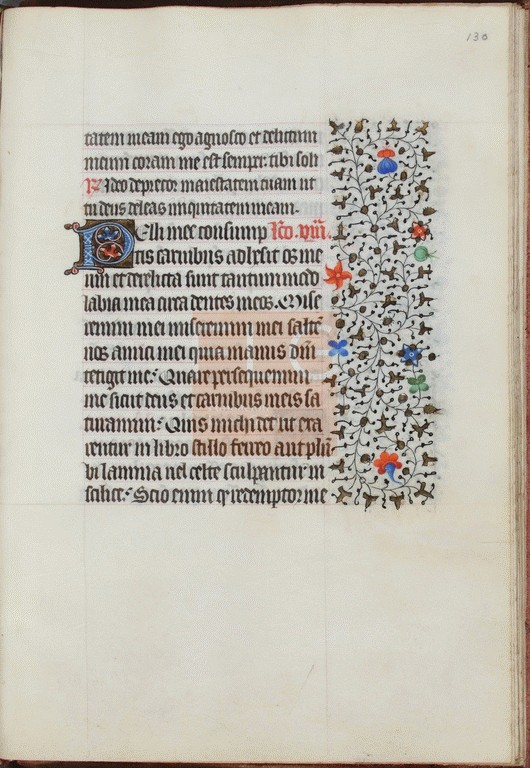 130
tatem meam ego agnosco et delictum
meum coram me est semper: tibi soli
℣. Ideo deprecor maiestatem tuam ut
tu deus deleas iniquitatem meam.
Pelli mee consump lc̄o. viii.
tis carnibus adhesit os me
um et derelicta sunt tantummodo
labia mea circa dentes meos. Mise
remini mei miseremini mei salteʳ
uos amici mei quia manus dn̄i
tetigit me: Quare persequemini
me sicut deus et carnibus meis sa
turamini: Quis michi det ut exa
rentur in libro stillo ferreo aut plūi
bi lamina uel celte sculpantur in
scilice: Scio enim qͥ redemptor me